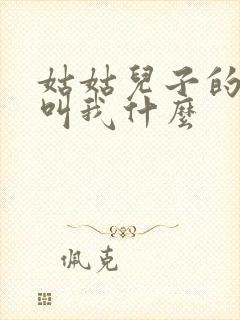 姑姑兒子的
叫我什麼
佩克